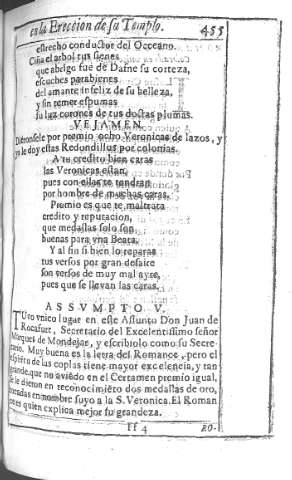 en la Ereccion de su Templo. 455
estrecho conductor del Occeano.
Ciña el arbol tus sienes
que abrigo fue de Dafne su corteza,
escuches parabienes
del amante infeliz de su belleza,
y sin temer espumas
su laz corones de tus doctas plumas.
VEJAMEN.
Dieronsele por premio ocho Veronicas de lazos, y
yo le doy estas Redondillas por colonias.
A tu credito bien caras
las Veronicas estan,
pues con ellas te tendran
por hombre de muchas caras.
Premio es que te maltrata
credito y reputacion,
que medallas solo son
buenas para vna Beata.
Y al fin si bien lo reparas
tus versos por gran desaire
son versos de muy mal ayre,
pues que se llevan las caras.
ASSVMPTO V.
TUvo vnico lugar en este Assunto Don Juan de
Rocafurt, Secretario del Excelentissimo señor
Marques de Mondejar, y escribiolo como su Secre-
tario. Muy buena es la letra del Romance, pero el
espiritu de las coplas tiene mayor excelencia, y tan
grande, que no aviendo en el Certamen premio igual,
le dieron en reconocimiẽto dos medallas de oro,
en nombre suyo a la S. Veronica. El Roman
es quien explica mejor su grandeza.
Ff 4 RO-